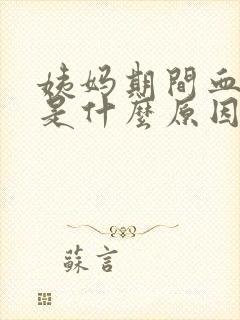 姨妈期間血
是什麼原因
蘇言